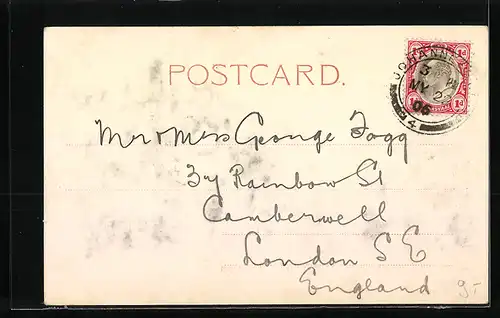 POSTCARD.
JOHANNE
3 P
MY 2
06
4
1d 1d
Mr & Miss George Fogg
37 Rainbow St
Camberwell
London S E
England
9-